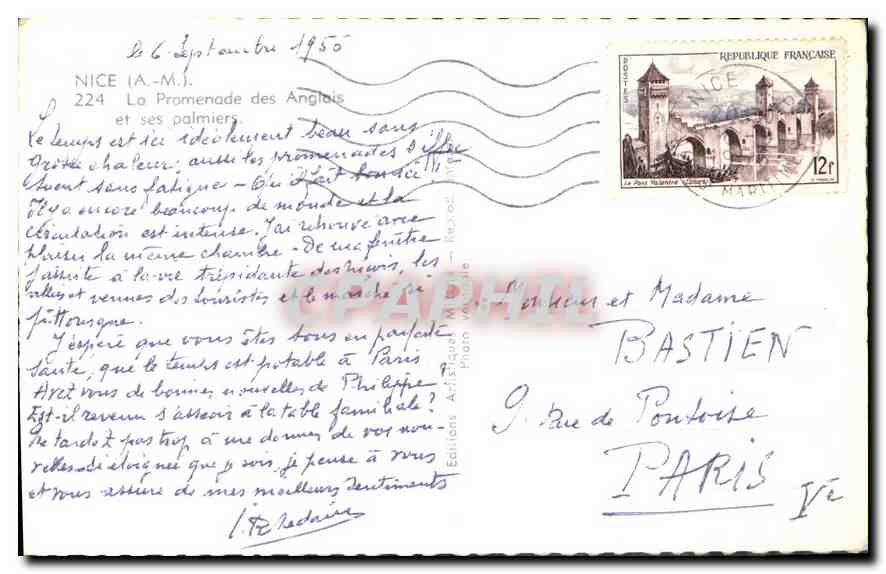 le 6 Septembre 1955
NICE (A.-M.).
224 La Promenade des Anglais
et ses palmiers.
Le temps est ici idéalement beau sans
grosse chaleur, aussi les promenades s'effec
tuent sans fatigue - Qu'il fait bon ici!!
Il y a encore beaucoup de monde et la
circulation est intense. J'ai retrouvé avec
plaisir la même chambre - De ma fenêtre
j'assiste à la vie trépidante des niçois, les
allées et venues des touristes et le marché si
pittoresque.
J'espère que vous êtes tous en parfaite
santé, que le temps est potable à Paris
Avez vous de bonnes nouvelles de Philippe?
Est-il revenu s'asseoir à la table familiale?
Ne tardez pas trop à me donner de vos nou-
velles. Si éloignée que je sois, je pense à vous
et vous assure de mes meilleurs sentiments
Editions Artistiques
Photo véritable — Reprod.
CPAPHIL
POSTES
REPUBLIQUE FRANÇAISE
Le Pont Valentré Cahors
12f
NICE
Monsieur et Madame
BASTIEN
9 rue de Pontoise
PARIS
Ve